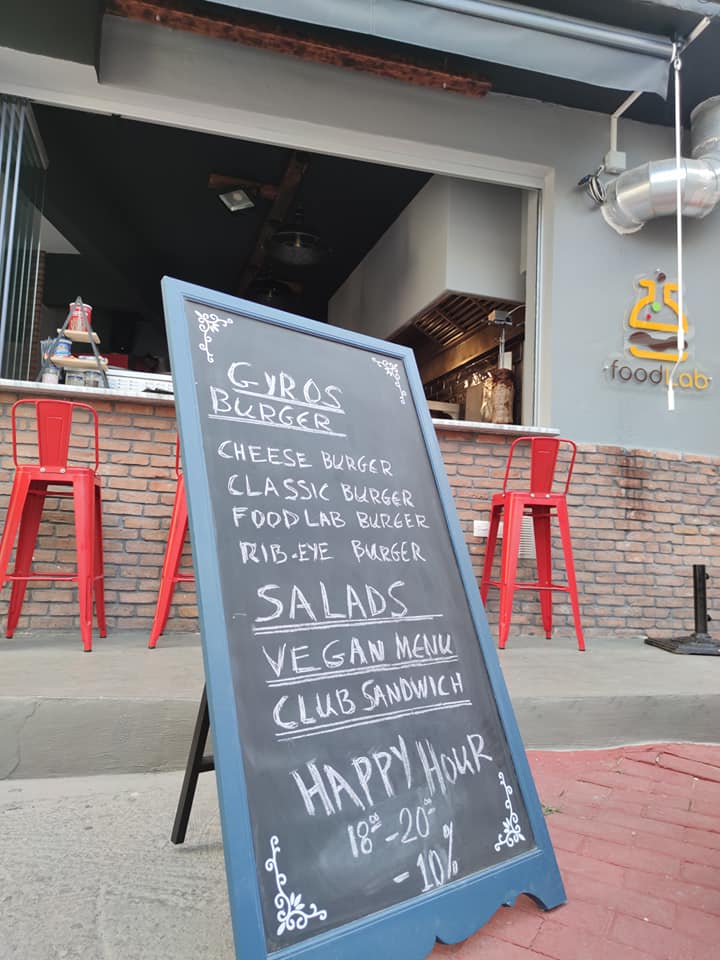 GYROS
BURGER
CHEESE BURGER
CLASSIC BURGER
FOODLAB BURGER
RIB-EYE BURGER
SALADS
VEGAN MENU
CLUB SANDWICH
HAPPY HOUR
18⁰⁰-20⁰⁰
-10%
·foodLab·